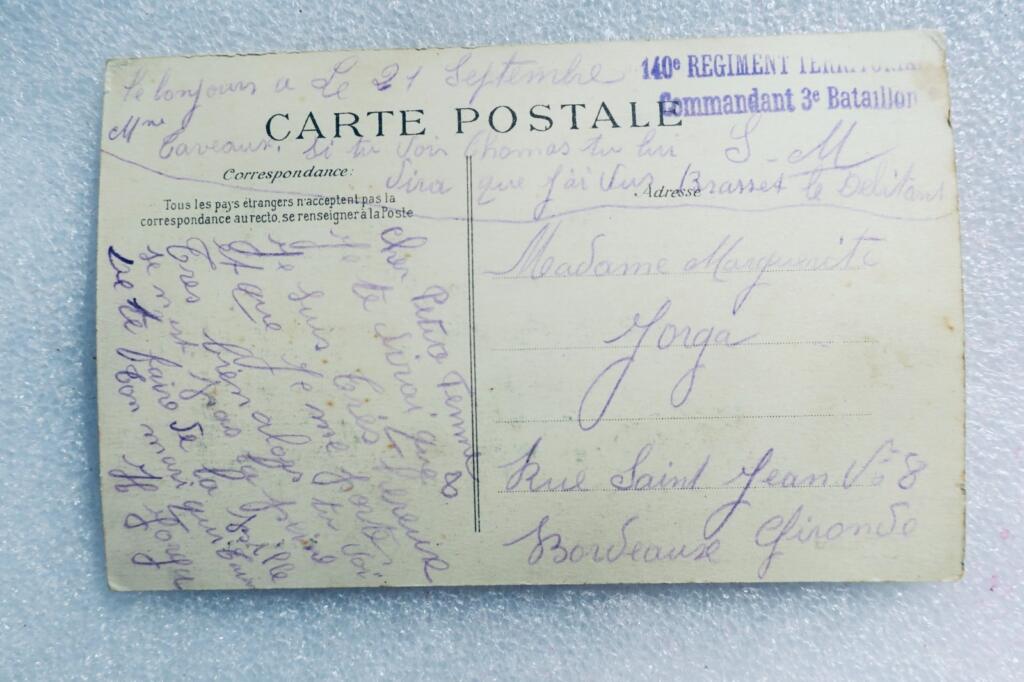 140e REGIMENT TERRITORIAL
Commandant 3e Bataillon
Le 21 Septembre
le bonjours a
Mme
CARTE POSTALE
Taveaux. Si tu voi Thomas tu lui
S-M
Correspondance:
dira que J'ai vus Brasset le
Adresse
Tous les pays étrangers n'acceptent pas la
correspondance au recto, se renseigner à la Poste
Madame Marguerite
Jorga
Rue Saint Jean No 8
Bordeaux Gironde
Cher Petite Femme
Je te dirai que
Je suis très heureux
et que Je me porte
Tres bien alors tu voi
se n'est pas la peine
de te faire de la bille
ton mari qui t'aime
H Jorga